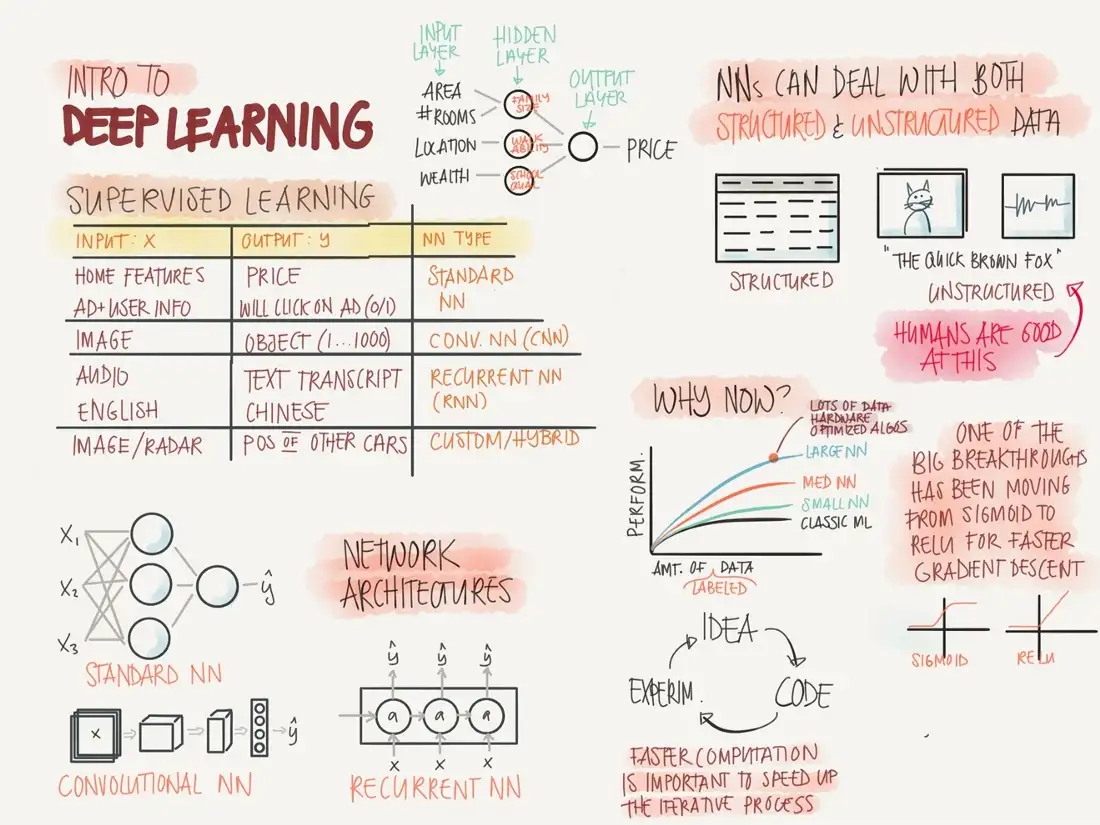 INTRO TO
DEEP LEARNING
INPUT LAYER
HIDDEN LAYER
OUTPUT LAYER
AREA
# ROOMS
LOCATION
WEALTH
FAMILY SIZE
WALK ABILITY
SCHOOL QUAL
PRICE
SUPERVISED LEARNING
INPUT: X OUTPUT: Y NN TYPE
HOME FEATURES PRICE STANDARD
AD+USER INFO WILL CLICK ON AD (0/1) NN
IMAGE OBJECT (1...1000) CONV. NN (CNN)
AUDIO TEXT TRANSCRIPT RECURRENT NN
ENGLISH CHINESE (RNN)
IMAGE/RADAR POS OF OTHER CARS CUSTOM/HYBRID
NNs CAN DEAL WITH BOTH
STRUCTURED & UNSTRUCTURED DATA
STRUCTURED
"THE QUICK BROWN FOX"
UNSTRUCTURED
HUMANS ARE GOOD
AT THIS
WHY NOW?
LOTS OF DATA
HARDWARE
OPTIMIZED ALGOS
LARGE NN
MED NN
SMALL NN
CLASSIC ML
PERFORM.
AMT. OF DATA
LABELED
ONE OF THE
BIG BREAKTHROUGHS
HAS BEEN MOVING
FROM SIGMOID TO
RELU FOR FASTER
GRADIENT DESCENT
SIGMOID
RELU
X1
X2
X3
ŷ
STANDARD NN
NETWORK
ARCHITECTURES
X
ŷ
CONVOLUTIONAL NN
ŷ ŷ ŷ
a a a
X X X
RECURRENT NN
IDEA
CODE
EXPERIM.
FASTER COMPUTATION
IS IMPORTANT TO SPEED UP
THE ITERATIVE PROCESS